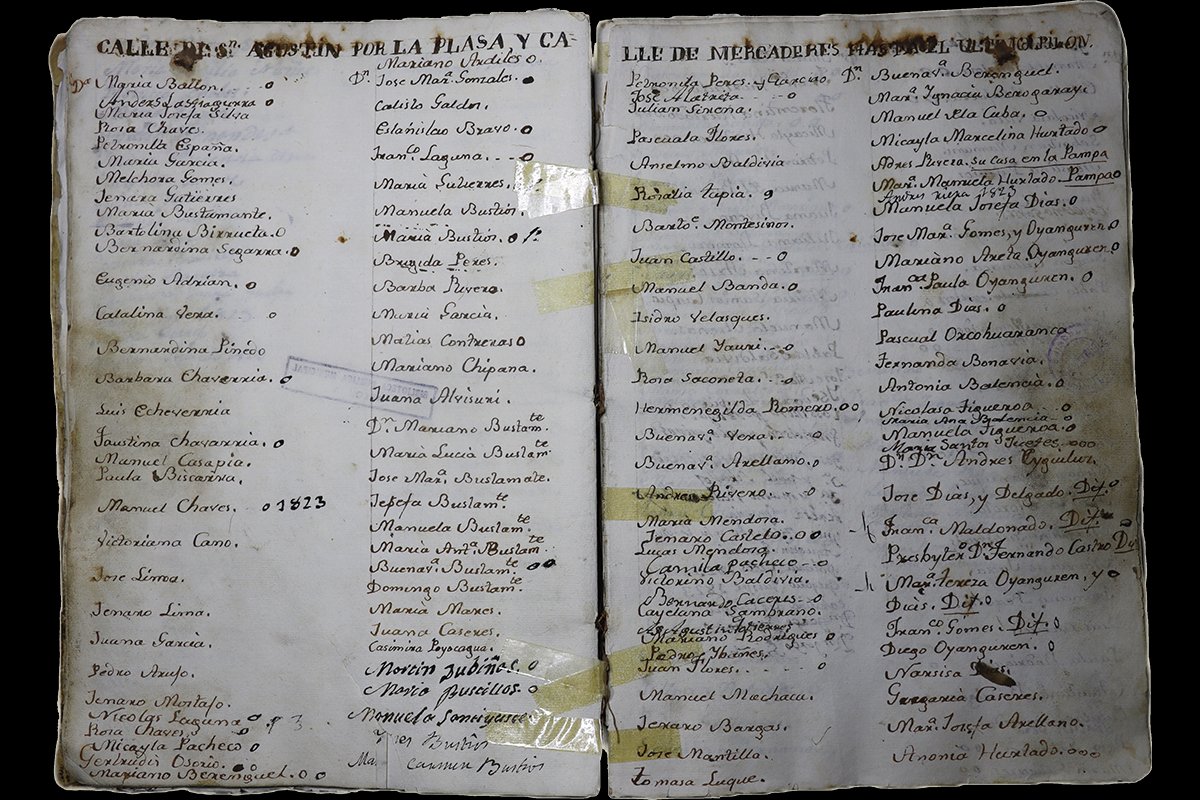 CALLE DE Sn. AGUSTIN POR LA PLASA Y CA-
Da. Maria Ballon. o
Maria Josefa Silva
Rosa Chaves.
Petronila España.
Maria Garcia.
Melchora Gomes.
Jenara Gutierres
Maria Bustamante.
Bartolina Birrueta. o
Bernardina Segarra. o
Eugenio Adrian. o
Catalina Vera. o
Bernardina Pinedo
Barbara Chaverria. o
Luis Echeverria
Faustina Chavarria. o
Manuel Casapia.
Paula Biscarra.
Manuel Chaves. o 1823
Victoriana Cano.
Jose Lima.
Jenaro Lima.
Juana Garcia.
Pedro Araujo.
Jenaro Mostajo.
Nicolas Laguna o
Rosa Chaves.
Micayla Pacheco o
Gertrudis Osorio. o o
Mariano Berenguel. o o
Mariano Ardiles o.
Dn. Jose Mara. Gonzales. o
Calisto Galdos.
Estanislao Bravo. o
Franco. Laguna. - - - o
Maria Gutierres.
Manuela Bustios.
Maria Bustios. o
Brigida Peres.
Barba Rivero.
Maria Garcia.
Matias Contreras o
Mariano Chipana.
Juana Alvisuri.
Dn. Mariano Bustamte.
Maria Lucia Bustamte
Jose Mara. Bustamate.
Josefa Bustamte.
Manuela Bustamte.
Maria Anta. Bustamte.
Buenava. Bustamte. o o
Domingo Bustamte.
Maria Mares.
Juana Caseres.
Casimira Poyocagua.
Martin Zubiñas. o
Maria Buscillos. o
Ynes Bustios
Carmen Bustios
LLE DE MERCADERES HASTA EL
Petronila Peres. y Garcigo
Jose Alatrita. - - o
Julian Sirena.
Pascuala Flores.
Anselmo Baldivia
Rosalia tapia. o
Barte. Montesinos.
Juan Castillo. - - - o
Manuel Banda. o
Isidro Velasques.
Manuel Yauri. - - o
Rosa Saconeta. - - o
Hermenegilda Romero. o o
Buenava. Vera. - - o
Buenava. Arellano. o
Andrea Rivero. o
Maria Mendosa.
Jenaro Castelo. o o
Lucas Mendosa.
Camila Pacheco - - o
Victorino Baldivia.
Bernardo Caceres - o
Cayetana Sambrano.
Mariano Rodrigues o
Pedro Ybañes.
Juan Flores. - - - o
Manuel Machaca.
Jenaro Bargas.
Jose Mantilla.
tomasa Luque.
Dn. Buenava. Berenguel.
Mara. Ignacia Berogaray
Manuel Pla Cuba. o
Micayla Marcelina Hurtado o
Adres Rivera. su casa en la Pampa
Mara. Manuela Hurtado. Pampa o
Andres 1823
Manuela Josefa Dias. o
Jose Mara. Gomes, y Oyanguren o
Mariano Areta Oyanguren o
Franca. Paula Oyanguren. o
Paulina Dias. o
Pascual Orcohuaranca
Fernanda Bonavia.
Antonia Balencia. o
Nicolasa Figueroa - - o
Maria Ana Balencia - o
Manuela Figueroa. o
Maria Santos ooo
Dr. Dn. Andres
Jose Dias, y Delgado. Dif. o
Franca. Maldonado. Dif. o
Presbytero Dn. Fernando Castro Dif
Mara. tereza Oyanguren, y o
Dias. Dif. o
Franco. Gomes. Dif. o
Diego Oyanguren. o
Narsisa Dias.
Gregoria Caseres.
Mara. Josefa Arellano.
Anonia Hurtado. ooo